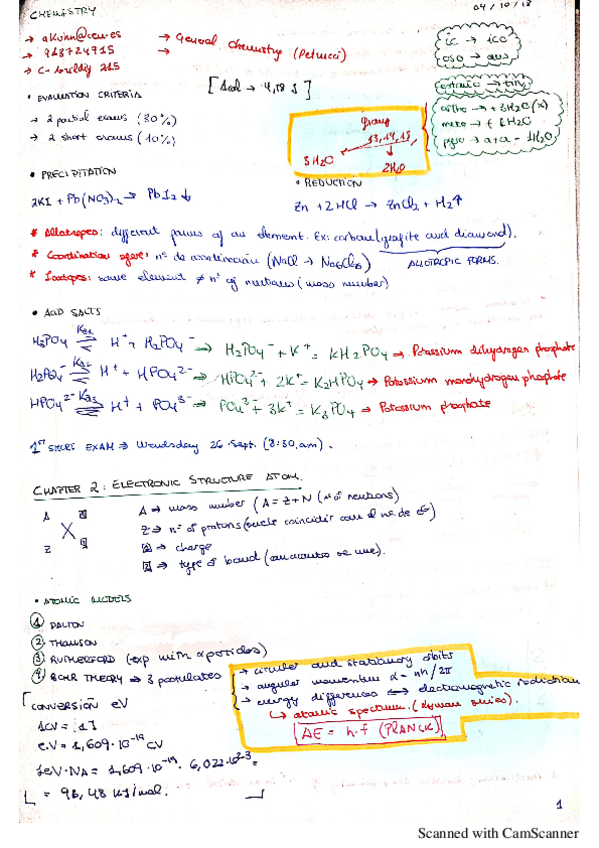 CHEMISTRY
04/10/18
→ akuinn@ceu.es
→ 913724715
→ General Chemistry (Petrucci)
→ C-building 215
→
ic → ico
oso → ous
[1cal → 4,18 J]
• EVALUATION CRITERIA
→ 2 partial exams (30%)
→ 2 short exams (10%)
Group
13, 14, 15
3H2O
2H2O
ortho → + 3H2O (x)
meta → + 2H2O
piro → a+a - H2O
• PRECIPITATION
2KI + Pb(NO3)2 → PbI2 ↓
• REDUCTION
Zn + 2HCl → ZnCl2 + H2↑
* Allotropes: different forms of an element. Ex: carbon (grafite and diamond).
ALLOTROPIC FORMS.
* Coordination sfere: nº de coordinación (NaCl → Na6Cl6)
* Isotopes: same element ≠ nº of neutrons (mass number)
• ACID SALTS
H3PO4 ⇌ H+ + H2PO4- → H2PO4- + K+ = KH2PO4 → Potassium dihydrogen phosphate
H2PO4- ⇌ H+ + HPO4 2- → HPO4 2- + 2K+ = K2HPO4 → Potassium monohydrogen phosphate
HPO4 2- ⇌ H+ + PO4 3- → PO4 3- + 3K+ = K3PO4 → Potassium phosphate
1ST SHORT EXAM → Wendsday 26 Sept. (8:30, am).
CHAPTER 2: ELECTRONIC STRUCTURE ATOM.
A
X
Z
A → mass number (A = Z + N (nº of neutrons)
Z → nº of protons (suele coincidir con el nº de e-)
→ charge
→ type of bond
• ATOMIC MODELS
① DALTON
② THOMSON
③ RUTHERFORD (exp with α particles)
④ BOHR THEORY → 3 postulates
→ circular and stationary orbits
→ angular momentum = nh/2π
→ energy differences ⟺ electromagnetic radiation
↳ atomic spectrum. (Lyman series).
ΔE = h·f (PLANCK)
CONVERSIÓN eV
1CV = 1J
e·V = 1,609·10-19 CV
1eV·NA = 1,609·10-19 · 6,022·1023 =
= 96,48 KJ/mol.
1
Scanned with CamScanner